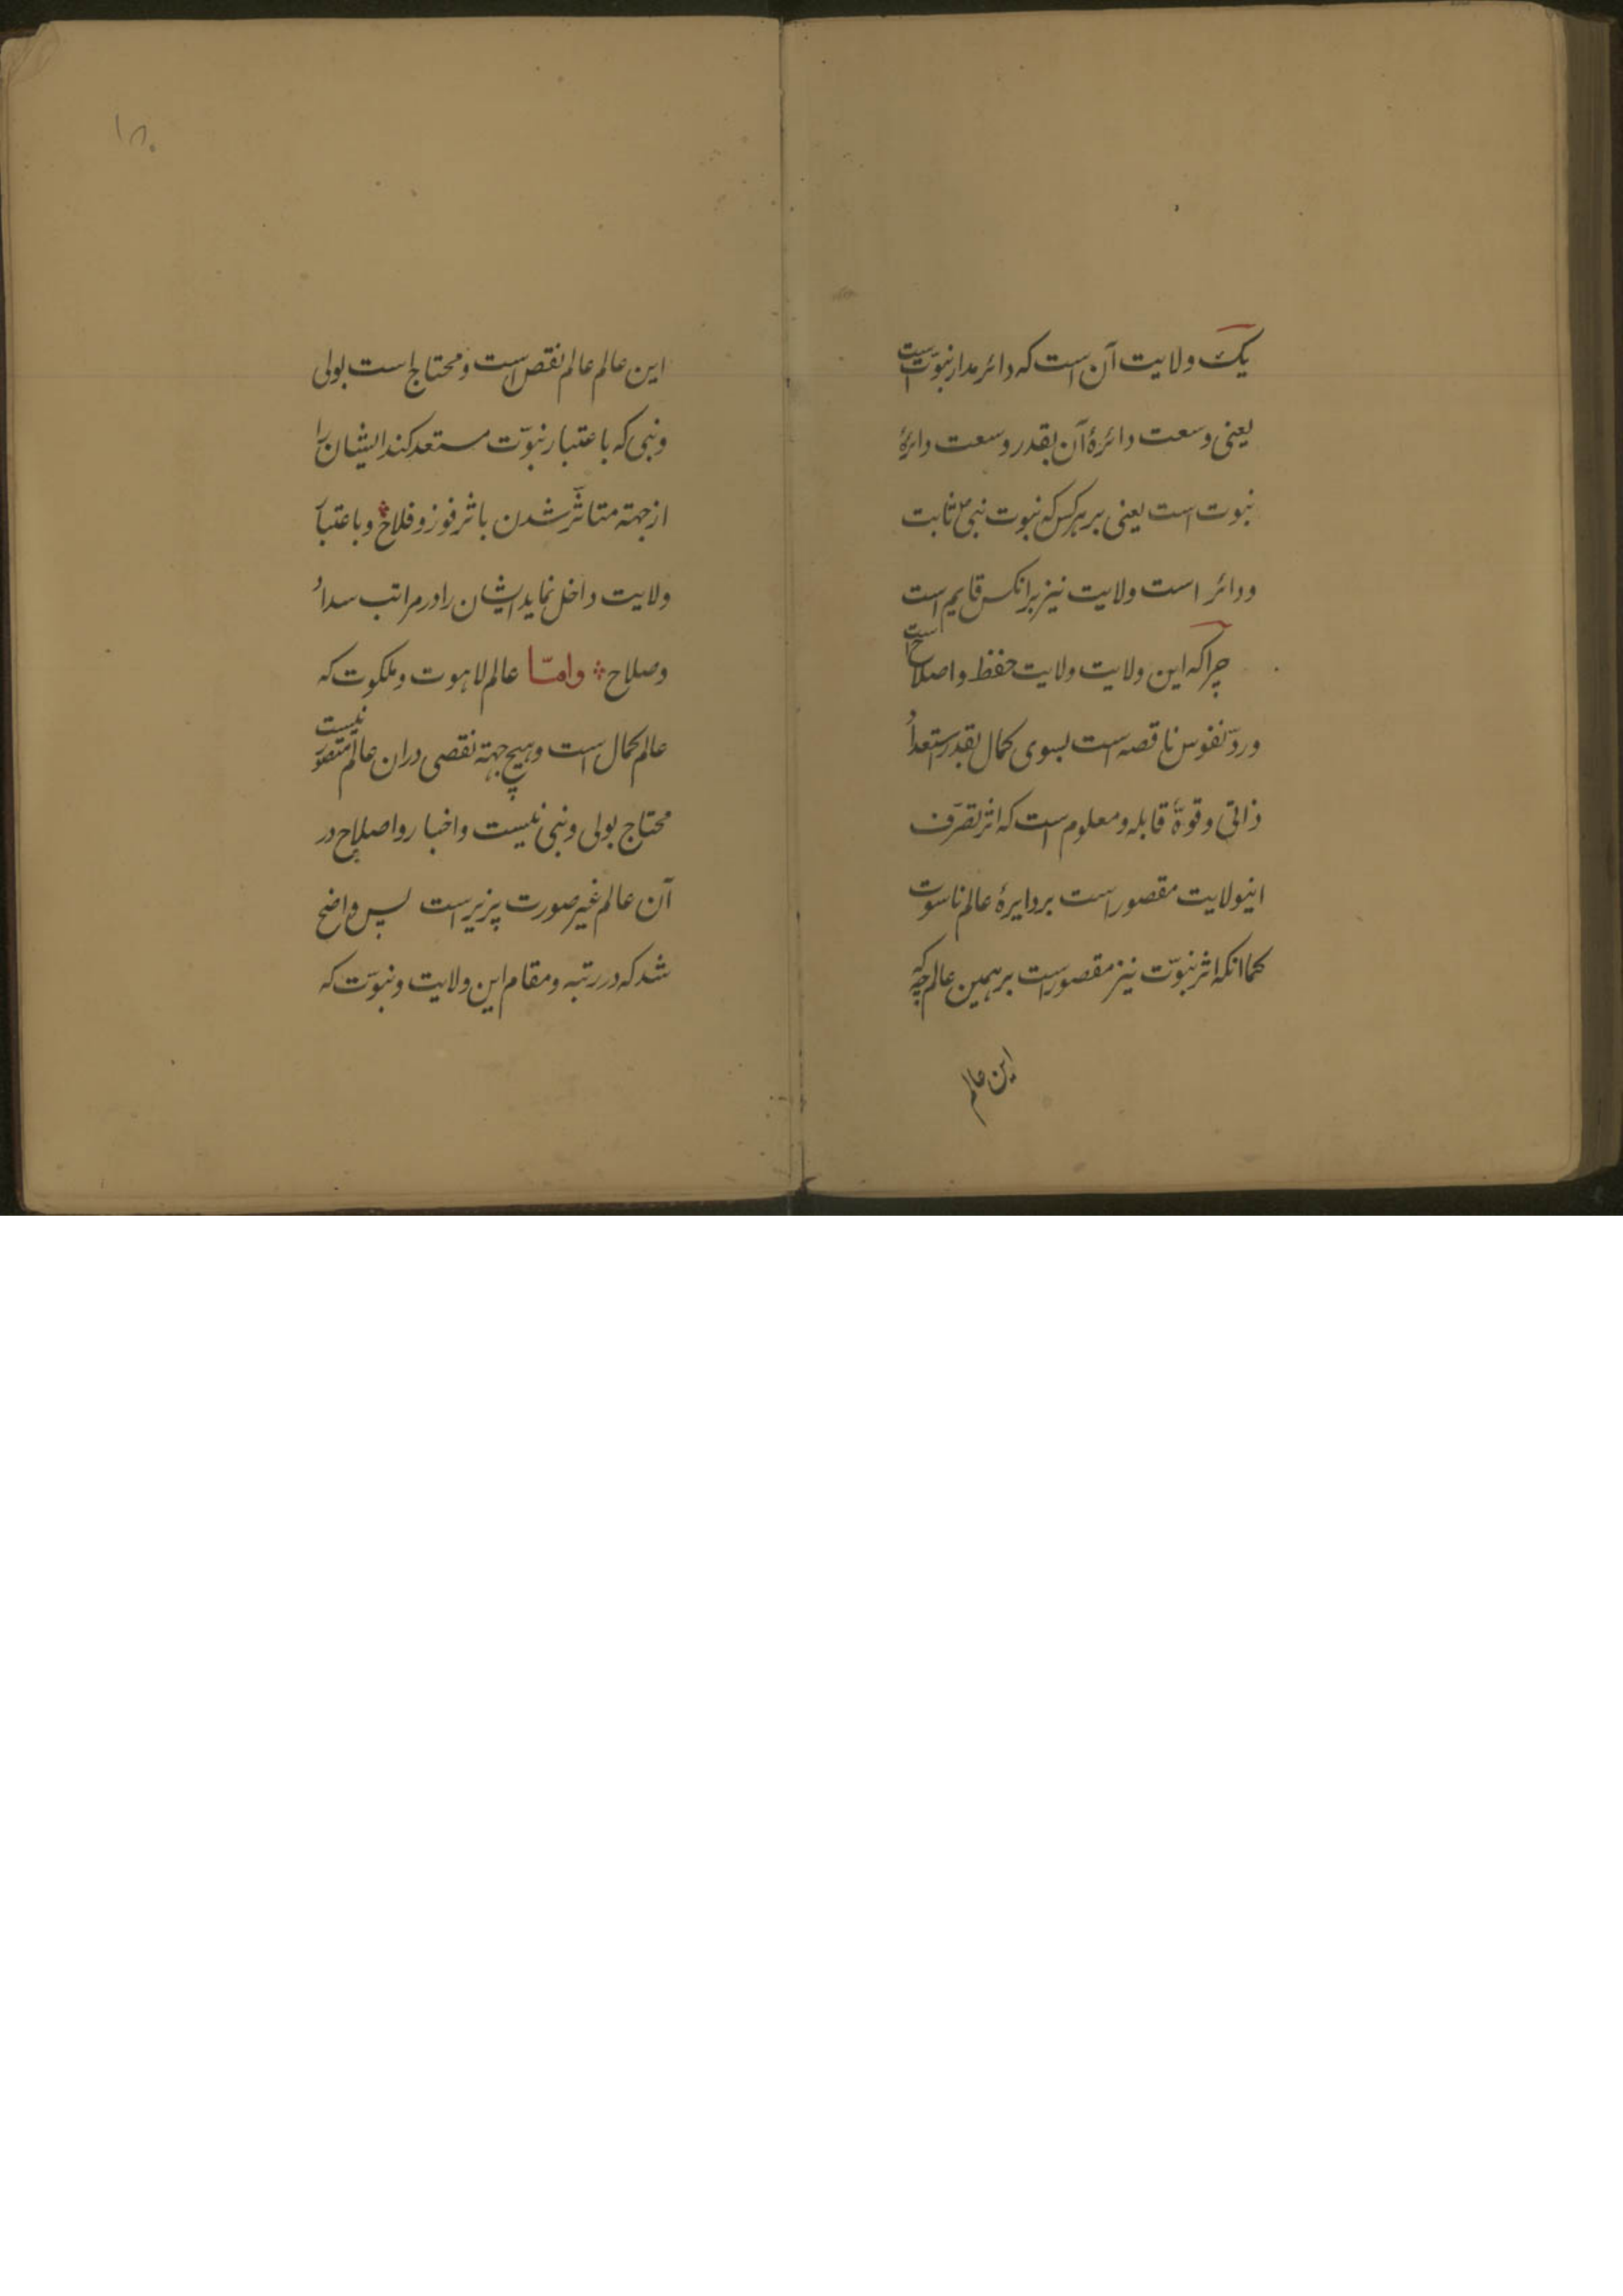 یک ولایت آن است که دائر مدار نبوّت است
یعنی وسعت دائرهٔ آن بقدر وسعت دائرهٔ
نبوت است یعنی بر هرکس که نبوت نبی ثابت
ودائر است ولایت نیز برانکس قایم است
چراکه این ولایت ولایت حفظ واصلاح است
وردّ نفوس ناقصه است بسوی کمال بقدر استعداد
ذاتی وقوهٔ قابله ومعلوم است که اثر تصرّف
اینولایت مقصور است بر دایرهٔ عالم ناسوت
کماانکه اثر نبوّت نیز مقصور است بر همین عالم چه که
این عالم
۱۸۰
این عالم عالم نقص است ومحتاج است بولی
ونبی که باعتبار نبوّت مستعد کند ایشان را
از جهتهٔ متاثّر شدن باثر فوز وفلاح وباعتبار
ولایت داخل نماید ایشان را در مراتب سداد
وصلاح وامّا عالم لاهوت وملکوت که
عالم کمال است وهیچ جهتهٔ نقصی دران عالم متصوّر نیست
محتاج بولی ونبی نیست واخبار واصلاح در
آن عالم غیر صورت پزیر است پس واضح
شد که در رتبه ومقام این ولایت ونبوّت که